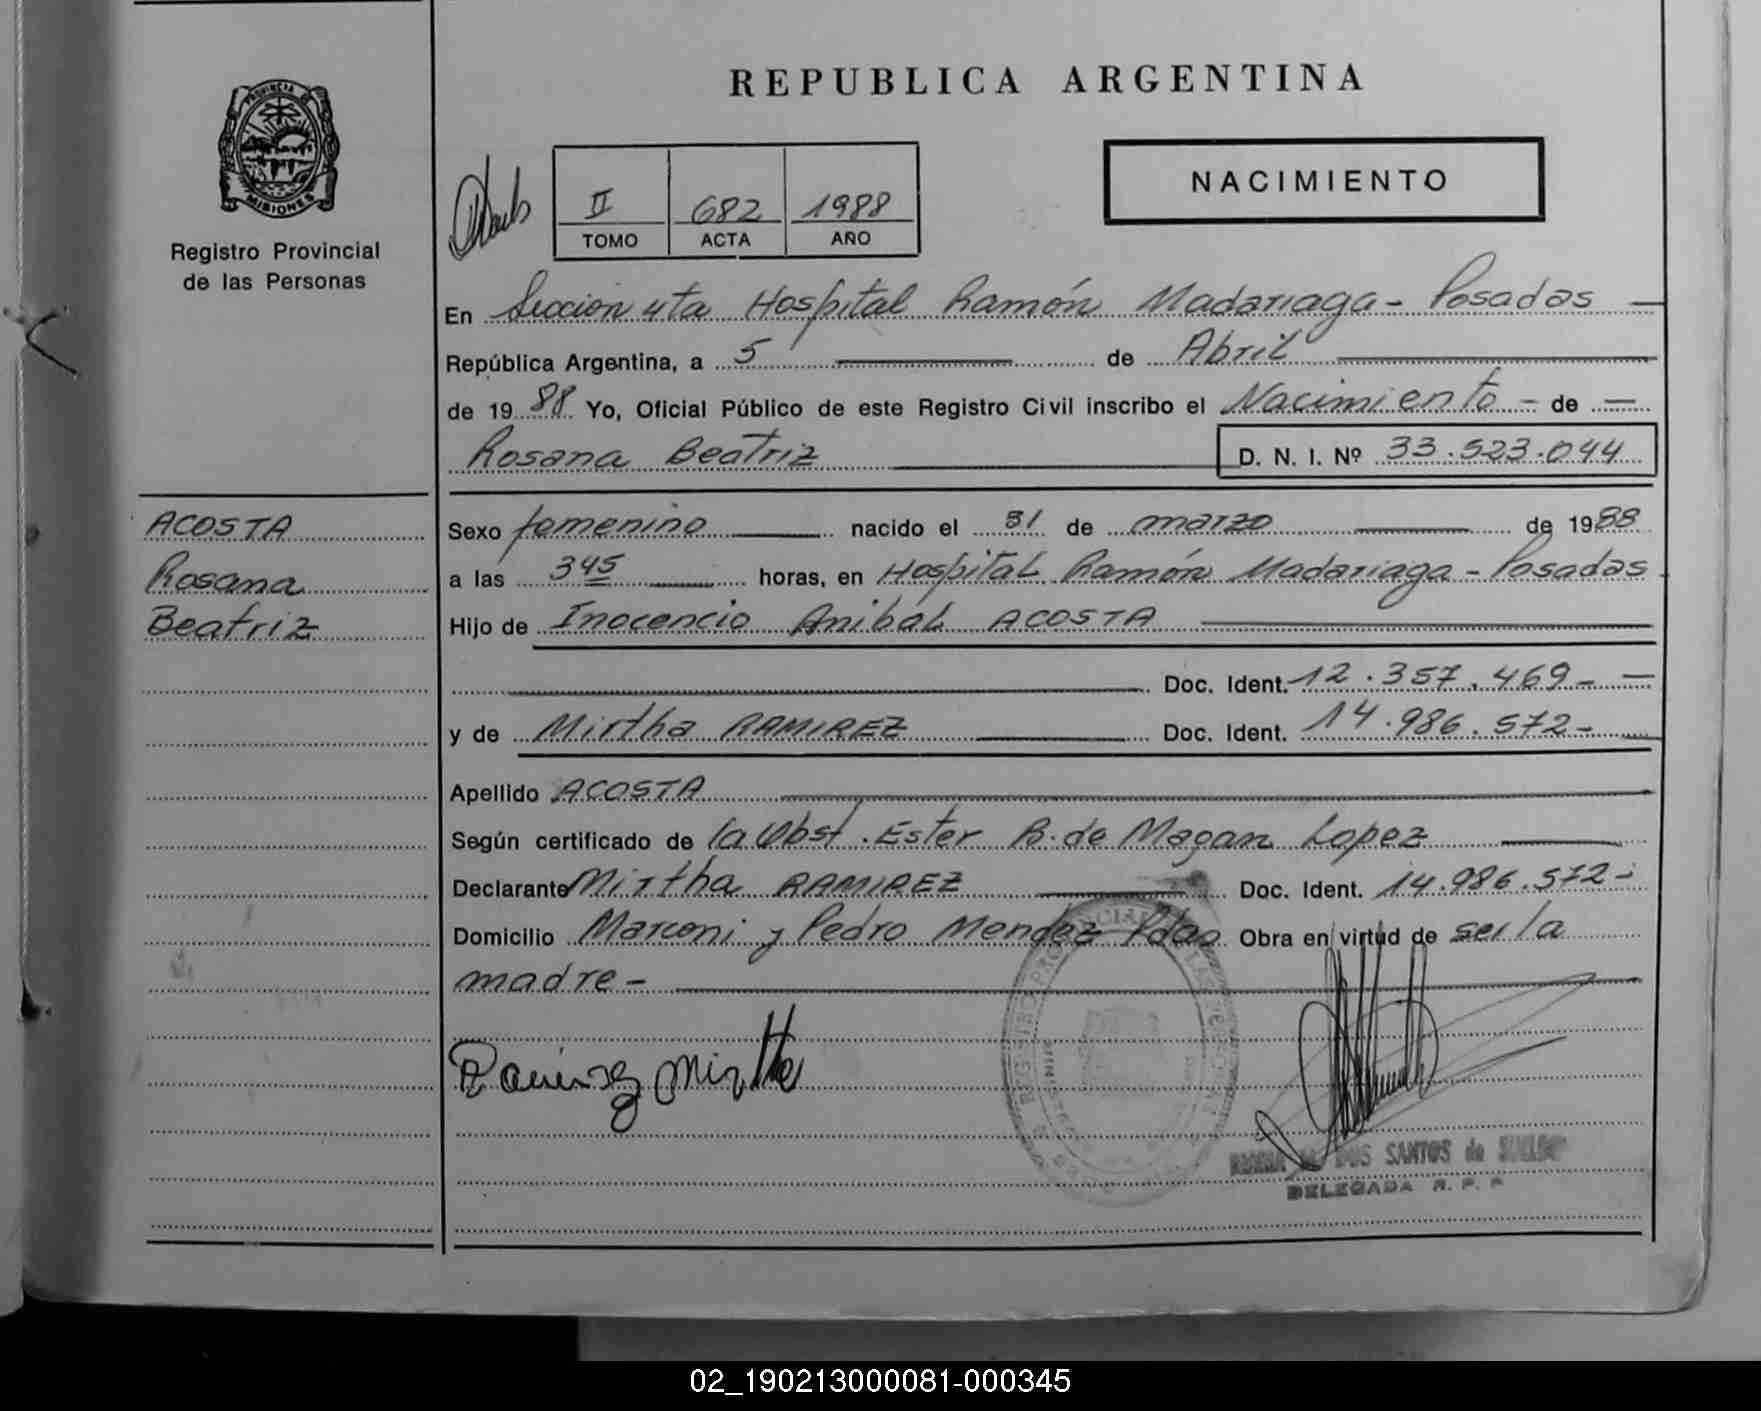 REPUBLICA ARGENTINA
PROVINCIA DE
MISIONES
Registro Provincial
de las Personas
NACIMIENTO
II 682 1988
TOMO ACTA AÑO
En Sección 4ta Hospital Ramón Madariaga - Posadas
República Argentina, a 5 de Abril
de 1988 Yo, Oficial Público de este Registro Civil inscribo el Nacimiento - de
Rosana Beatriz D. N. I. Nº 33.523.044
ACOSTA
Rosana
Beatriz
Sexo femenino nacido el 31 de marzo de 1988
a las 345 horas, en Hospital Ramón Madariaga - Posadas
Hijo de Inocencio Anibal ACOSTA
Doc. Ident. 12.357.469-
y de Mirtha RAMIREZ Doc. Ident. 14.986.572-
Apellido ACOSTA
Según certificado de la Obst. Ester B. de Magan Lopez
Declarante Mirtha RAMIREZ Doc. Ident. 14.986.572-
Domicilio Marconi y Pedro Mendez Pdas Obra en virtud de ser la
madre -
Ramirez Mirtha
DOS SANTOS de
DELEGADA R. P. P
02_190213000081-000345